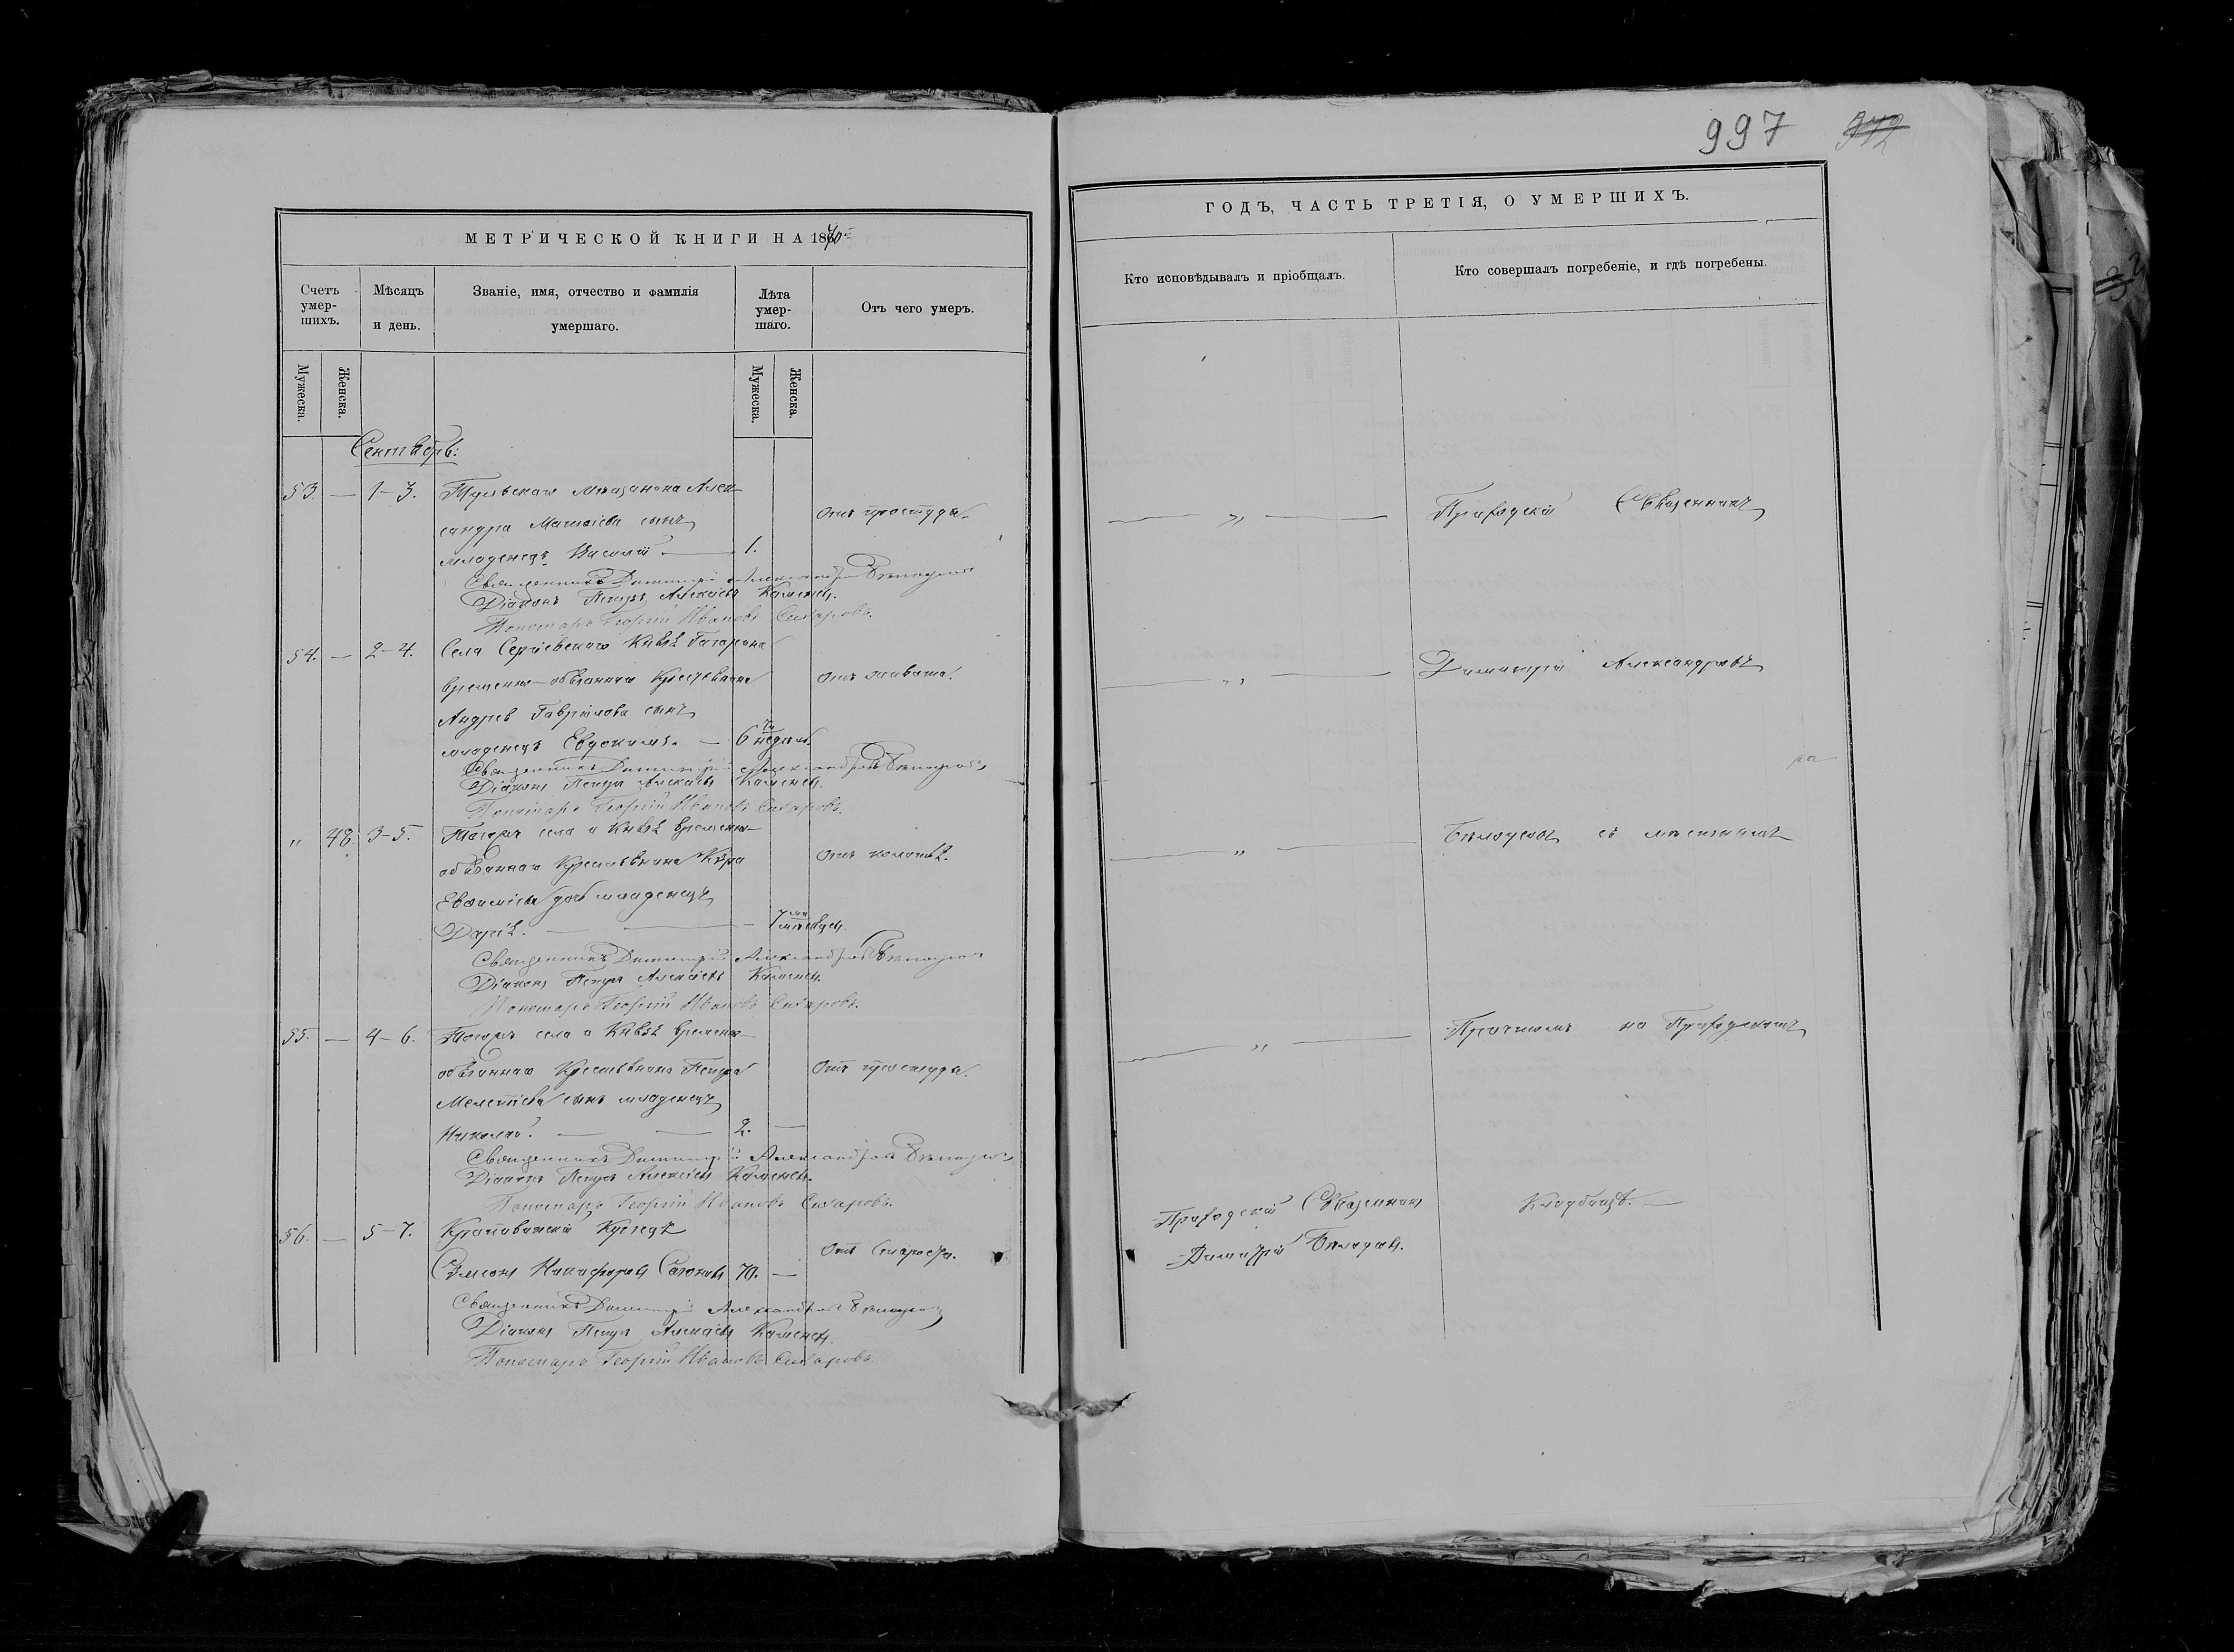 МЕТРИЧЕСКОЙ КНИГИ НА 1870й
Счетъ умершихъ.
Мѣсяцъ и день.
Званіе, имя, отчество и фамилія умершаго.
Лѣта умершаго.
Отъ чего умеръ.
Мужеска.
Женска.
Мужеска.
Женска.
Сентябрь.
53. — 1-3. Тульскаго мѣщанина Алек-
сандра Матвѣева сынъ
младенецъ Василій — 1.
Отъ простуды.
Священникъ Димитрій Александровъ Бѣлоусовъ
Діаконъ Петръ Алексѣевъ Каменевъ.
Пономарь Георгій Ивановъ Сахаровъ.
54. — 2-4. Села Сергіевскаго Князя Гагарина
временно-обязаннаго Крестьянина
Андрея Гаврилова сынъ
младенецъ Евдокимъ. — 6ти недѣль.
Отъ
Священникъ Димитрій Александровъ Бѣлоусовъ
Діаконъ Петръ Алексѣевъ Каменевъ.
Пономарь Георгій Ивановъ Сахаровъ.
" 48. 3-5. Тогожъ села и Князя временно-
обязаннаго Крестьянина
Евѳиміева дочь младенецъ
Дарія. — 7ми мѣсяцевъ.
Отъ
Священникъ Димитрій Александровъ Бѣлоусовъ
Діаконъ Петръ Алексѣевъ Каменевъ.
Пономарь Георгій Ивановъ Сахаровъ.
55. — 4-6. Тогожъ села и Князя временно-
обязаннаго Крестьянина Петра
Мелетіева сынъ младенецъ
Николай. — 2. —
Отъ простуды.
Священникъ Димитрій Александровъ Бѣлоусовъ
Діаконъ Петръ Алексѣевъ Каменевъ.
Пономарь Георгій Ивановъ Сахаровъ.
56. — 5-7. Крапивинскій Купецъ
Симеонъ Никифоровъ Сафоновъ 70. —
Отъ старости.
Священникъ Димитрій Александровъ Бѣлоусовъ
Діаконъ Петръ Алексѣевъ Каменевъ.
Пономарь Георгій Ивановъ Сахаровъ.
997 372
ГОДЪ, ЧАСТЬ ТРЕТІЯ, О УМЕРШИХЪ.
Кто исповѣдывалъ и пріобщалъ.
Кто совершалъ погребеніе, и гдѣ погребены.
— „ — Приходскій Священникъ
— „ — Димитрій Александровъ
— „ — Бѣлоусовъ съ мѣстнымъ
— „ — Причтомъ на Приходскомъ
Приходскій Священникъ
Димитрій Бѣлоусовъ.
Кладбищѣ. —